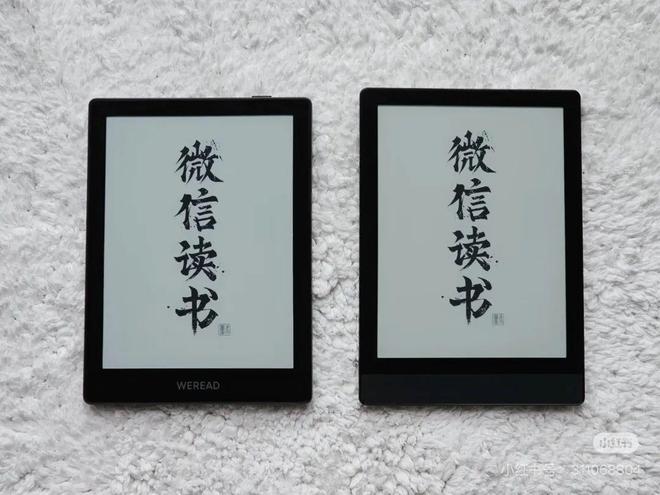 微信读书
WEREAD
微信读书
小红书
小红书号：311068804